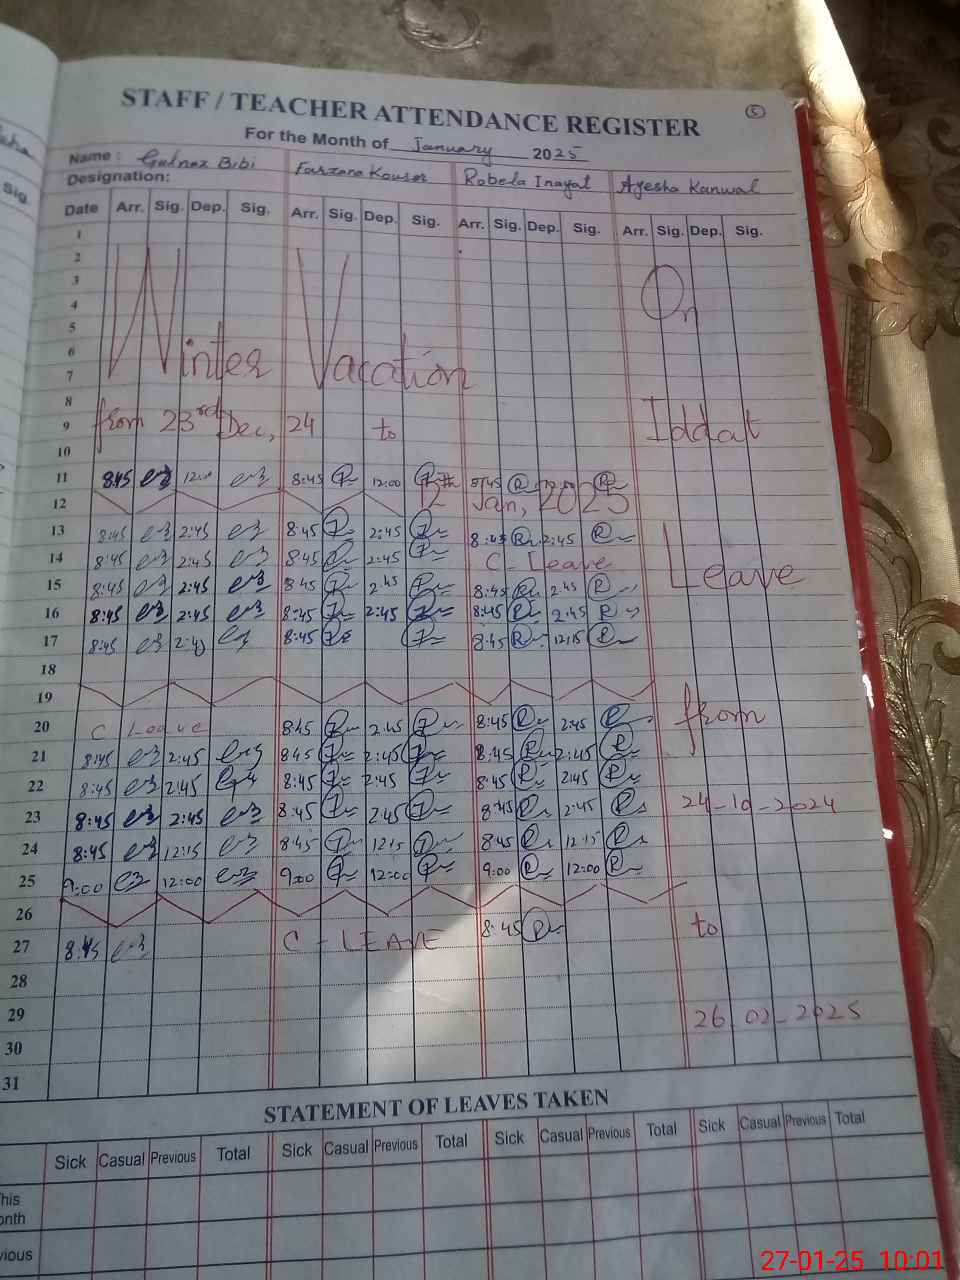 5
STAFF / TEACHER ATTENDANCE REGISTER
For the Month of January 2025
Name : Gulnaz Bibi Farzana Kouser Robela Inayat Ayesha Kanwal
Designation:
Date Arr. Sig. Dep. Sig. Arr. Sig. Dep. Sig. Arr. Sig. Dep. Sig. Arr. Sig. Dep. Sig.
Sig.
1
2
3
4
5
6
7
8
9
10
Winter Vacation
from 23rd Dec, 24 to
12th Jan, 2025
On
Iddat
Leave
from
24-10-2024
to
26.02-2025
11 8:45 12:00 8:45 12:00 8:45 12:00
12
13 8:45 2:45 8:45 2:45 8:45 2:45
14 8:45 2:45 8:45 2:45 C-Leave
15 8:45 2:45 8:45 2:45 8:45 2:45
16 8:45 2:45 8:45 2:45 8:45 2:45
17 8:45 2:45 8:45 8:45 12:15
18
19
20 C Leave 8:45 2:45 8:45 2:45
21 8:45 2:45 8:45 2:45 8:45 2:45
22 8:45 2:45 8:45 2:45 8:45 2:45
23 8:45 2:45 8:45 2:45 8:45 2:45
24 8:45 12:15 8:45 12:15 8:45 12:15
25 9:00 12:00 9:00 12:00 9:00 12:00
26
27 8:45 C - LEAVE 8:45
28
29
30
31
STATEMENT OF LEAVES TAKEN
Sick Casual Previous Total Sick Casual Previous Total Sick Casual Previous Total Sick Casual Previous Total
27-01-25 10:01